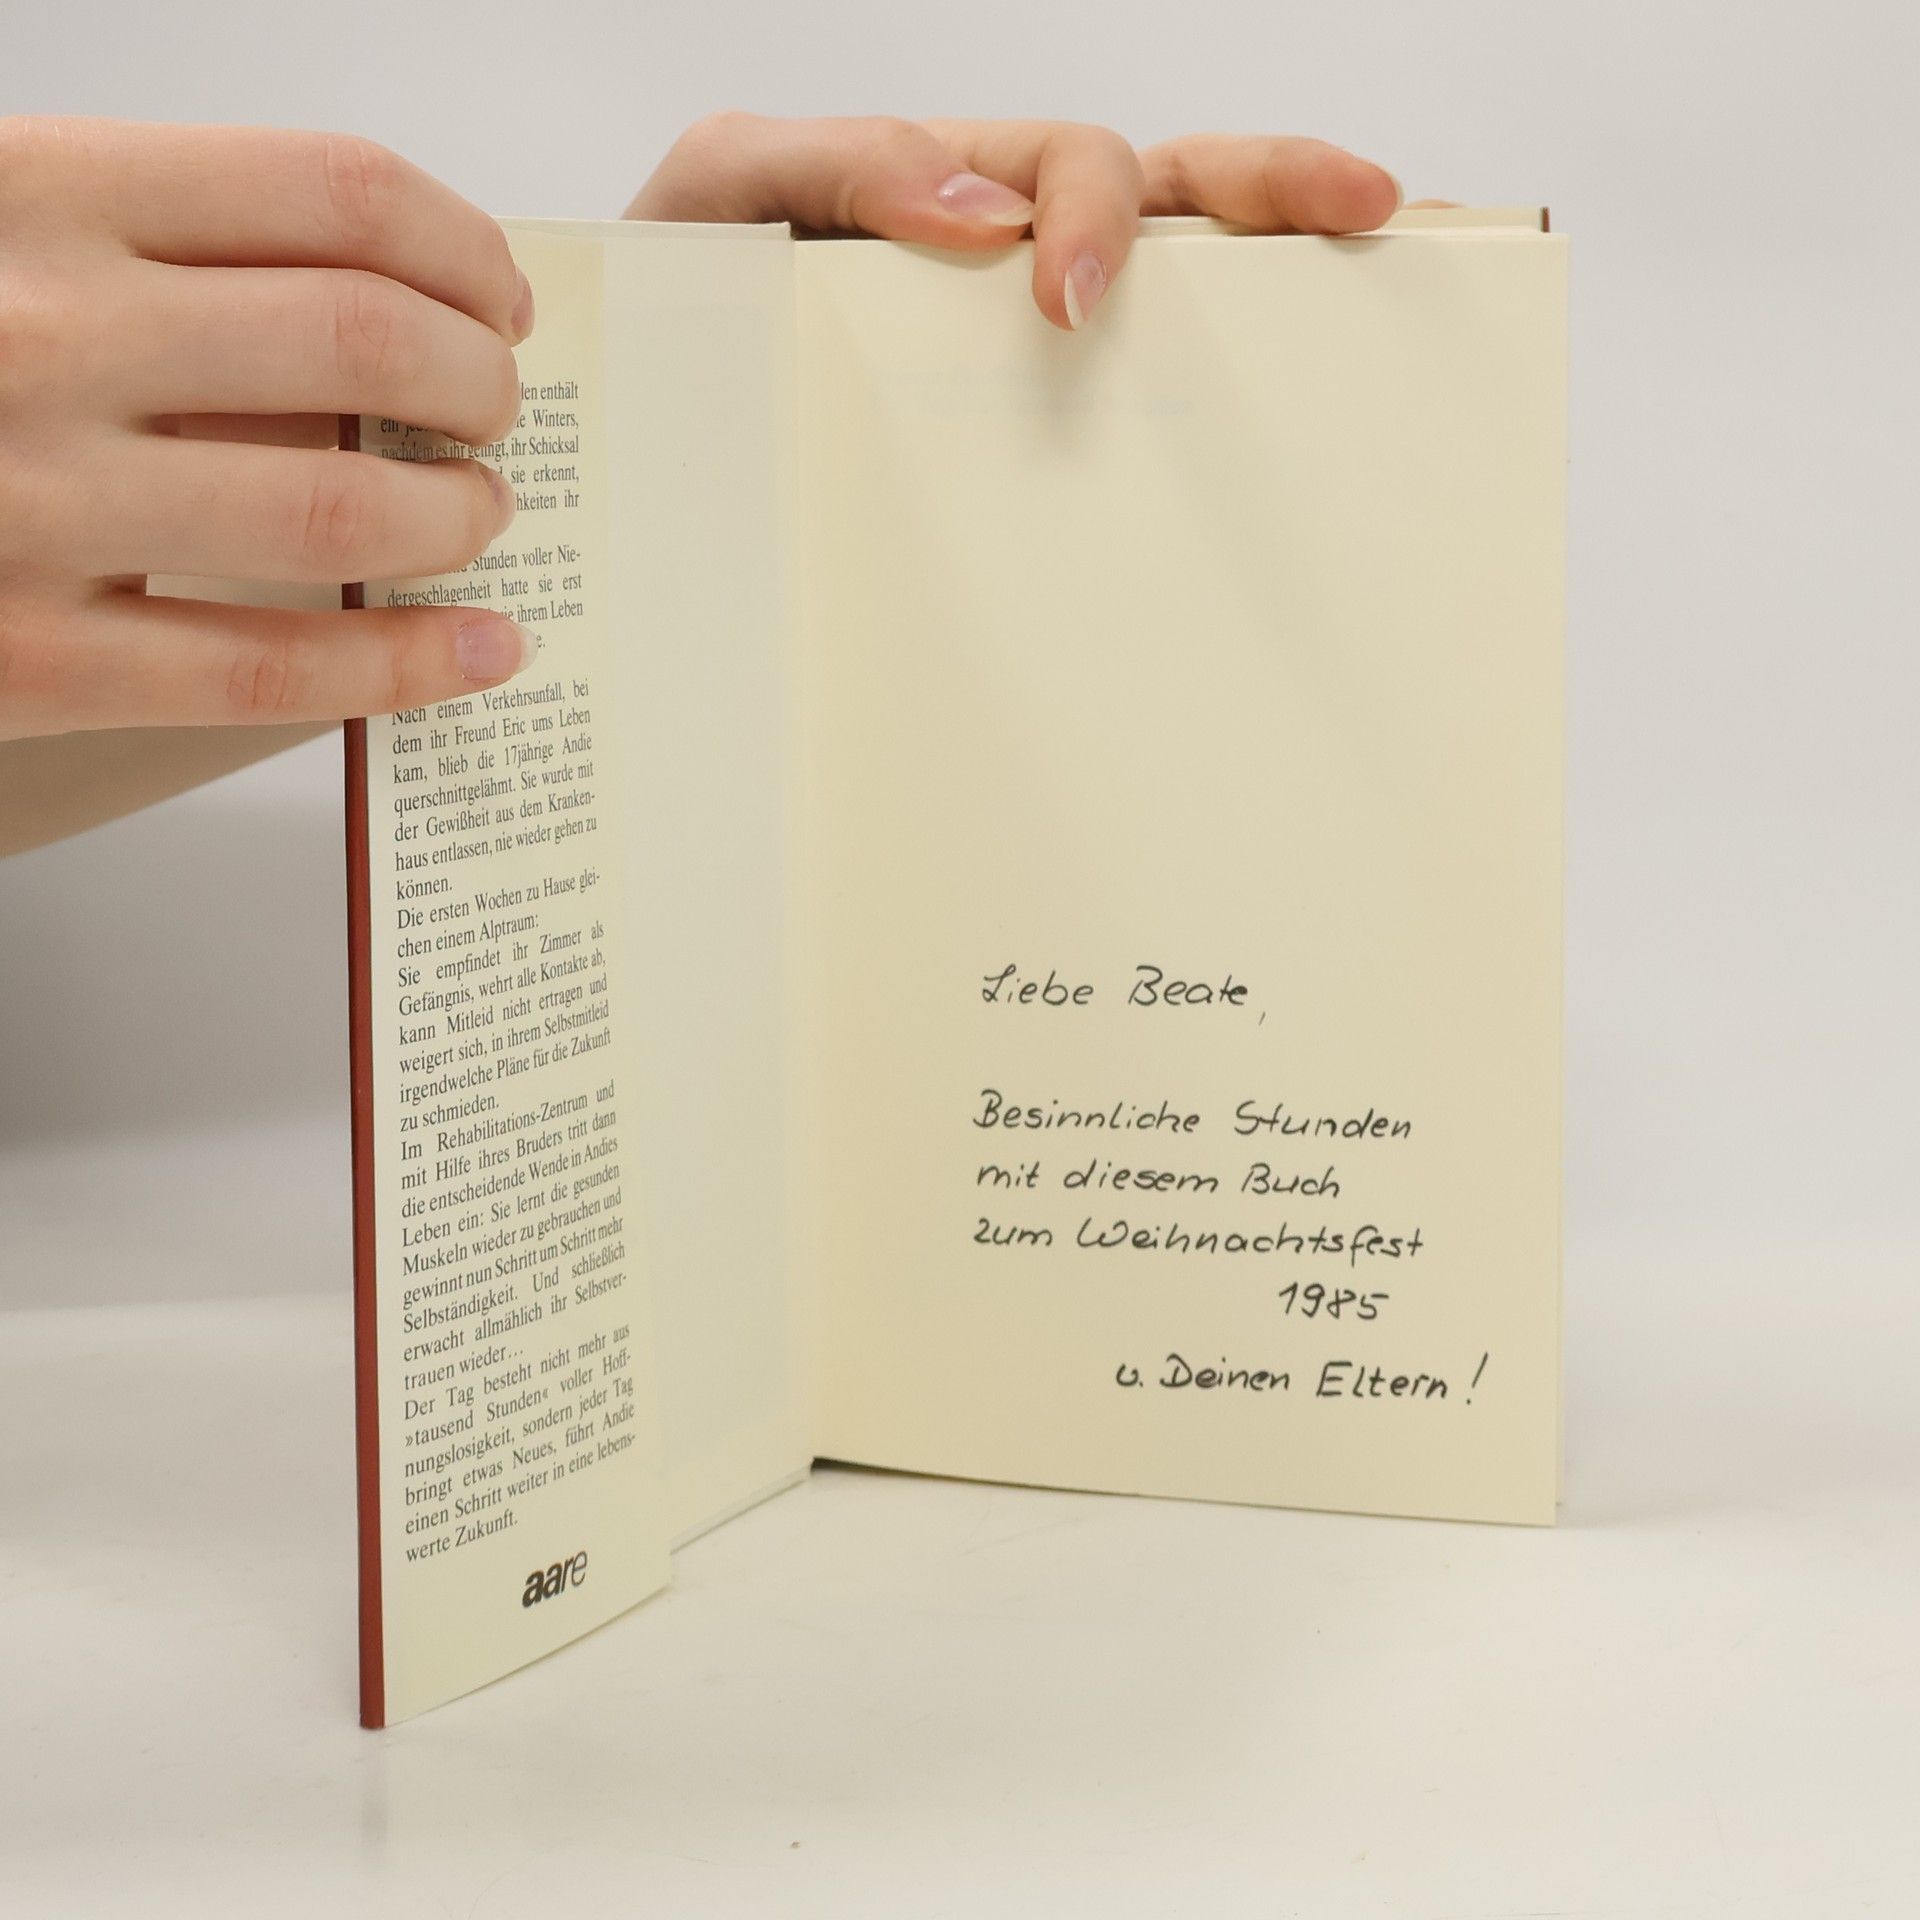 len enthält
ein Winters,
nachdem es ihr gelingt, ihr Schicksal
sie erkennt,
ihr
Stunden voller Nie-
dergeschlagenheit hatte sie erst
ihrem Leben
Nach einem Verkehrsunfall, bei
dem ihr Freund Eric ums Leben
kam, blieb die 17jährige Andie
querschnittgelähmt. Sie wurde mit
der Gewißheit aus dem Kranken-
haus entlassen, nie wieder gehen zu
können.
Die ersten Wochen zu Hause glei-
chen einem Alptraum:
Sie empfindet ihr Zimmer als
Gefängnis, wehrt alle Kontakte ab,
kann Mitleid nicht ertragen und
weigert sich, in ihrem Selbstmitleid
irgendwelche Pläne für die Zukunft
zu schmieden.
Im Rehabilitations-Zentrum und
mit Hilfe ihres Bruders tritt dann
die entscheidende Wende in Andies
Leben ein: Sie lernt die gesunden
Muskeln wieder zu gebrauchen und
gewinnt nun Schritt um Schritt mehr
Selbständigkeit. Und schließlich
erwacht allmählich ihr Selbstver-
trauen wieder...
Der Tag besteht nicht mehr aus
»tausend Stunden« voller Hoff-
nungslosigkeit, sondern jeder Tag
bringt etwas Neues, führt Andie
einen Schritt weiter in eine lebens-
werte Zukunft.
aare
Liebe Beate,
Besinnliche Stunden
mit diesem Buch
zum Weihnachtsfest
1985
v. Deinen Eltern!